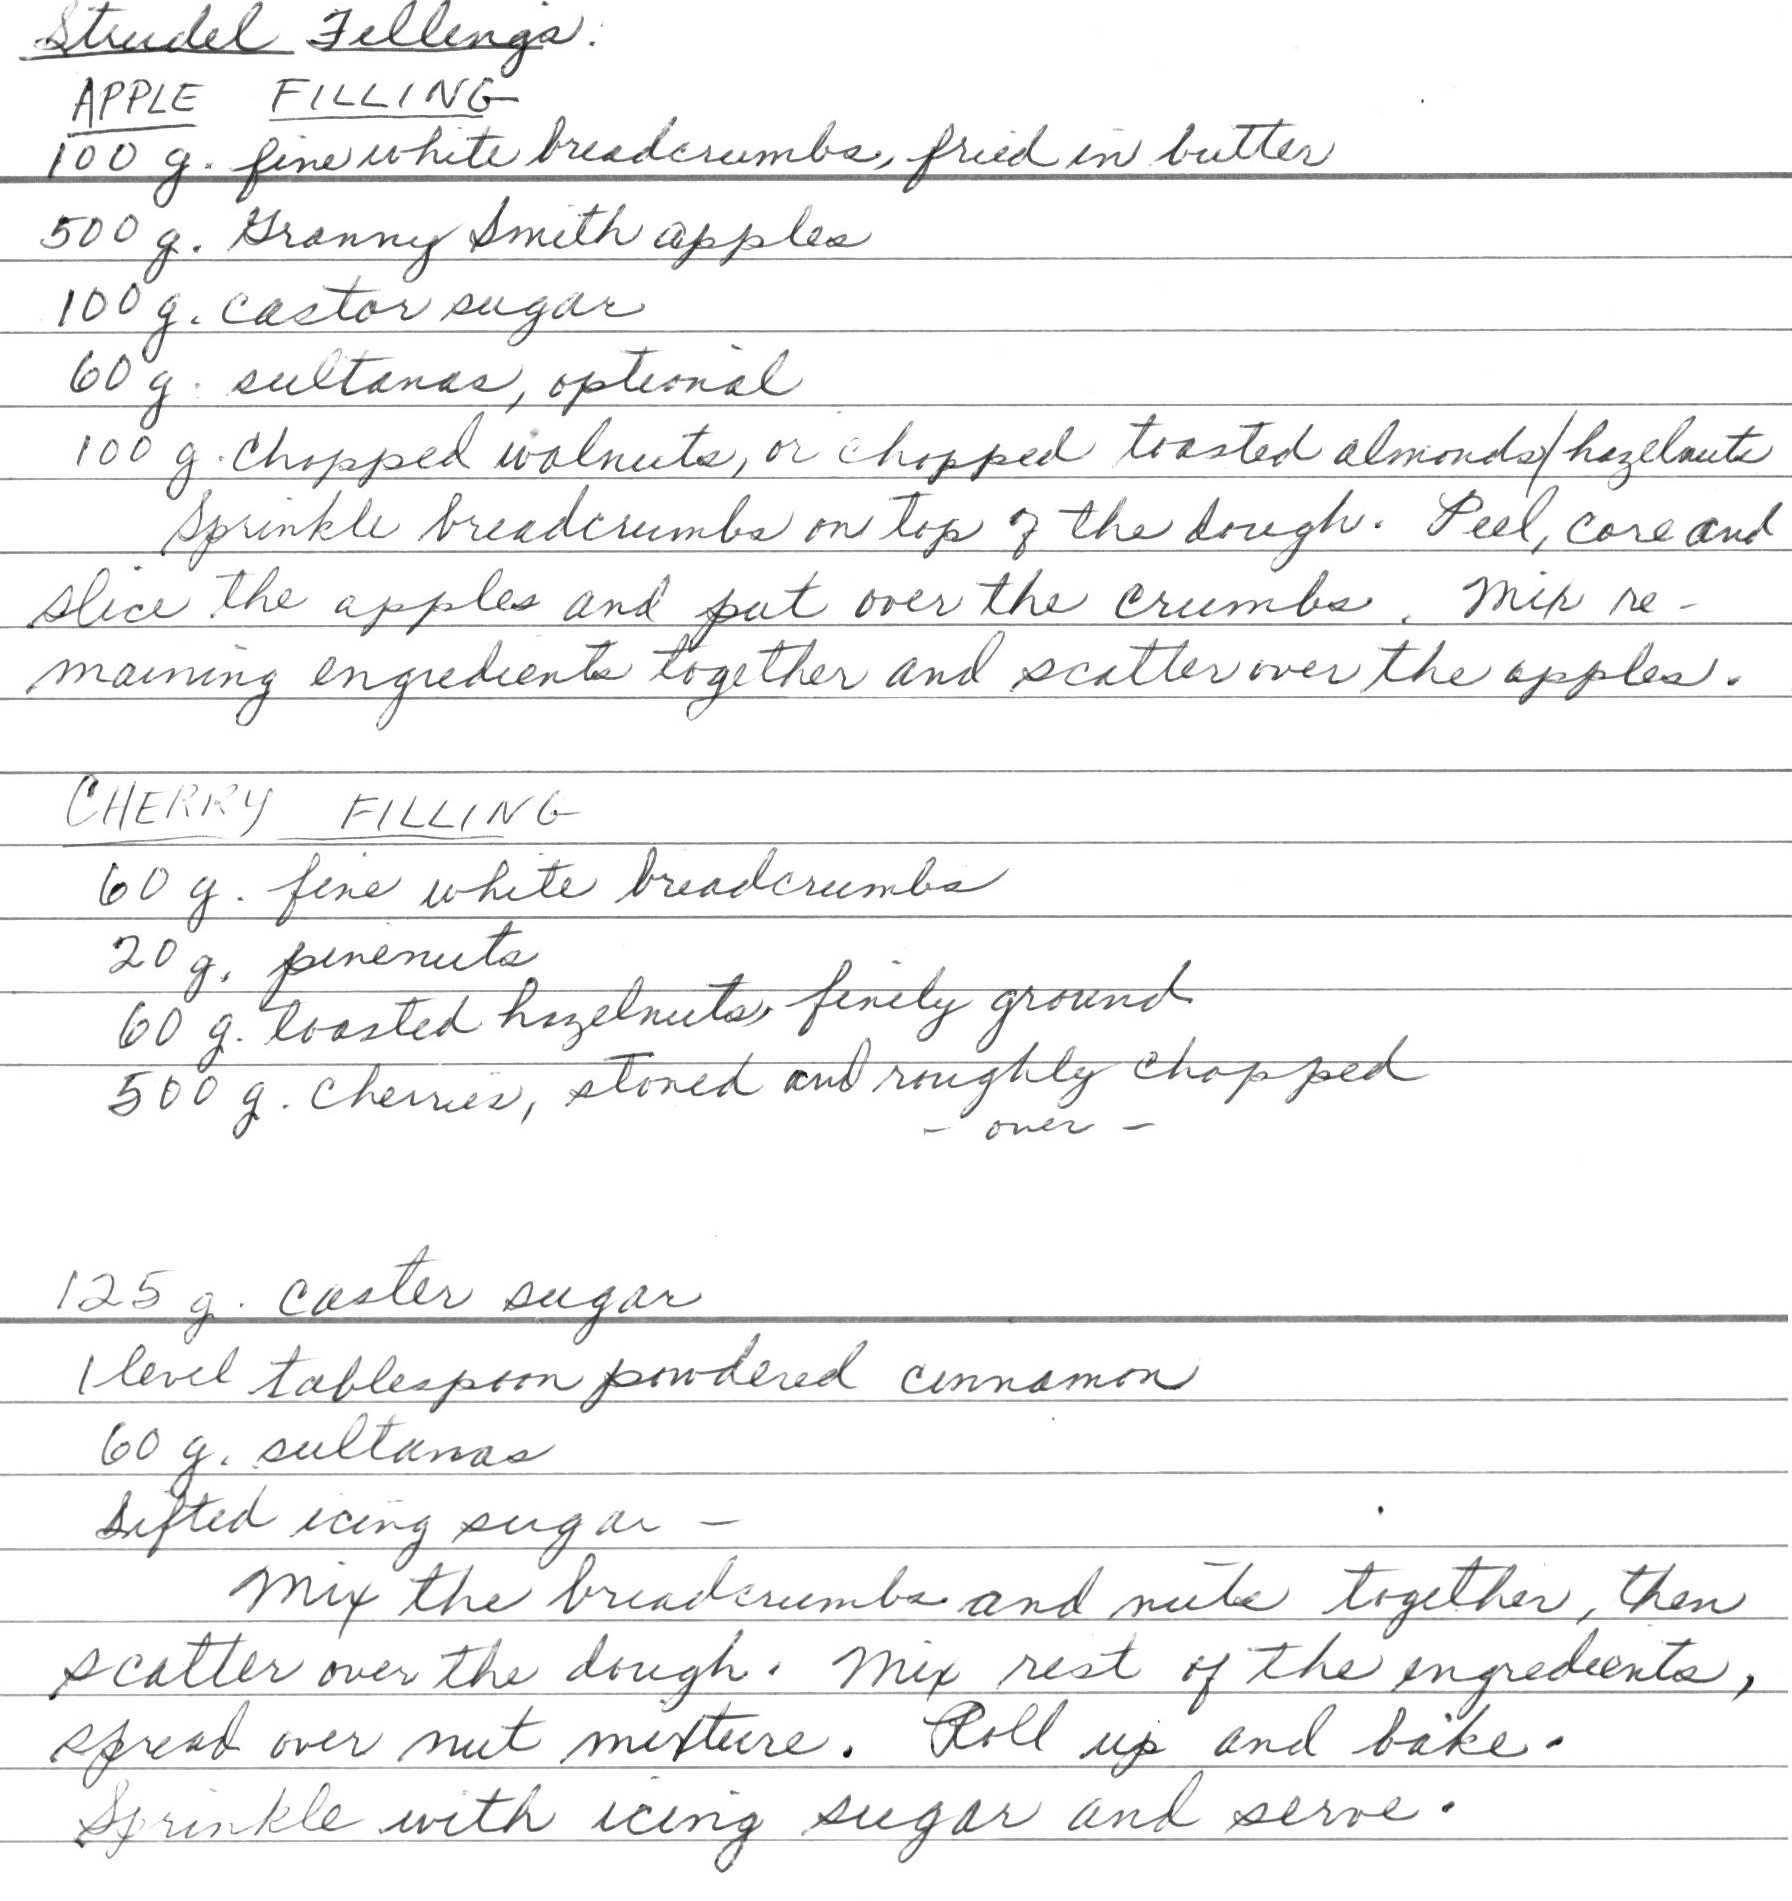 Strudel Fillings:
APPLE FILLING
100 g. fine white breadcrumbs, fried in butter
500 g. Granny Smith apples
100 g. castor sugar
60 g. sultanas, optional
100 g. chopped walnuts, or chopped toasted almonds/hazelnuts
Sprinkle breadcrumbs on top of the dough. Peel, core and
slice the apples and put over the crumbs. Mix re-
maining ingredients together and scatter over the apples.
CHERRY FILLING
60 g. fine white breadcrumbs
20 g. pinenuts
60 g. toasted hazelnuts, finely ground
500 g. cherries, stoned and roughly chopped
- over -
125 g. caster sugar
1 level tablespoon powdered cinnamon
60 g. sultanas
Sifted icing sugar -
Mix the breadcrumbs and nuts together, then
scatter over the dough. Mix rest of the ingredients,
spread over nut mixture. Roll up and bake.
Sprinkle with icing sugar and serve.